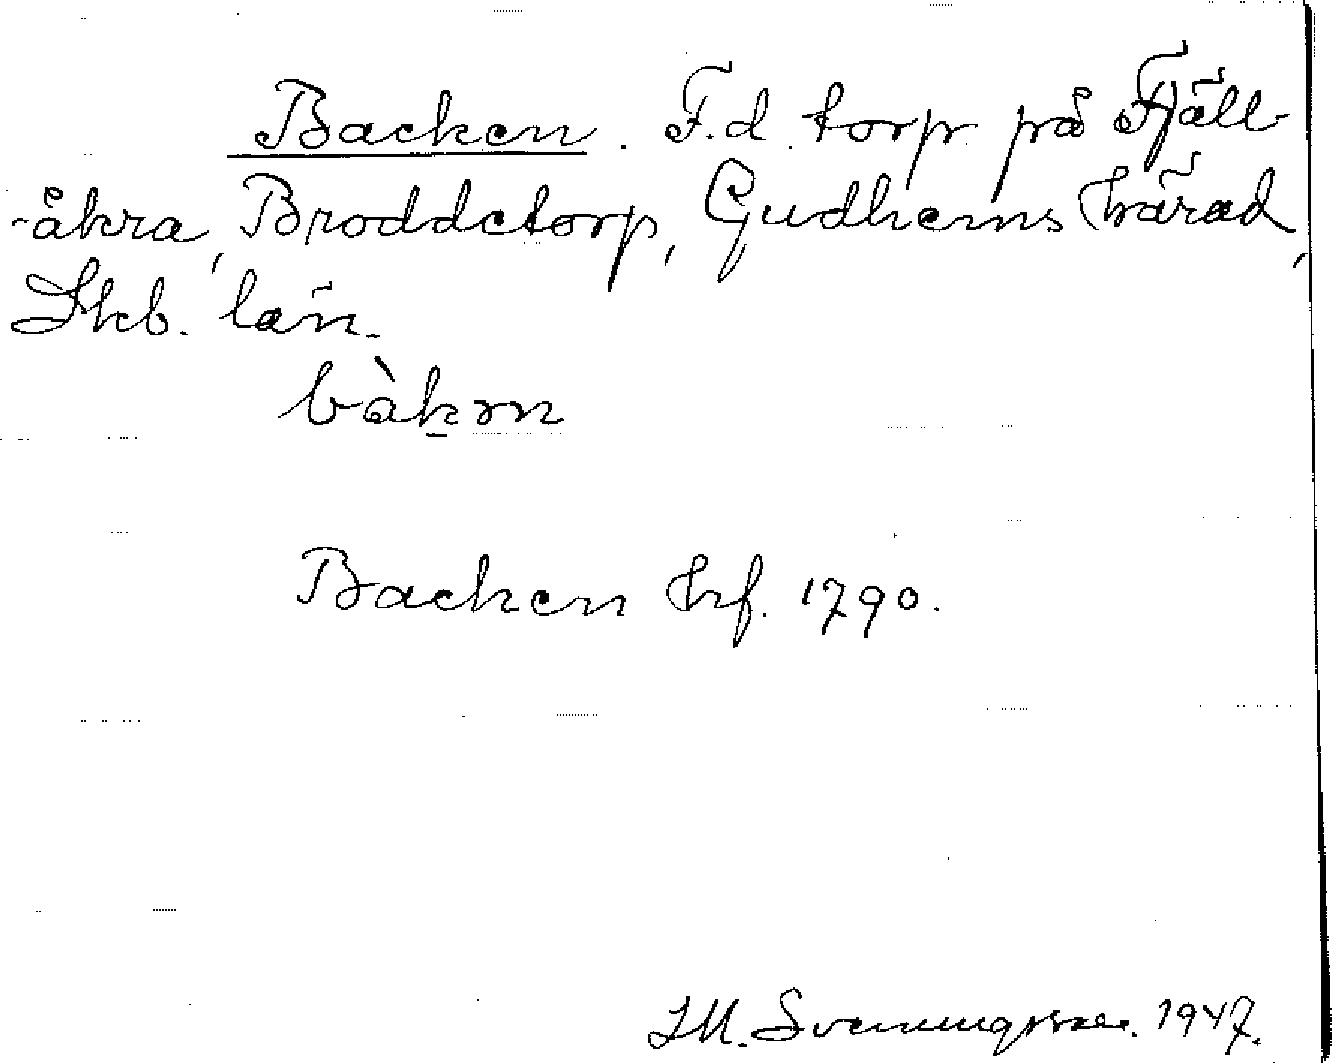 Backen. F.d. torp på Fjäll-
åkra, Broddetorp, Gudhems härad,
Skb. län.
bàkɷn
Backen hf. 1790.
J.M. Svenningsson. 1947.